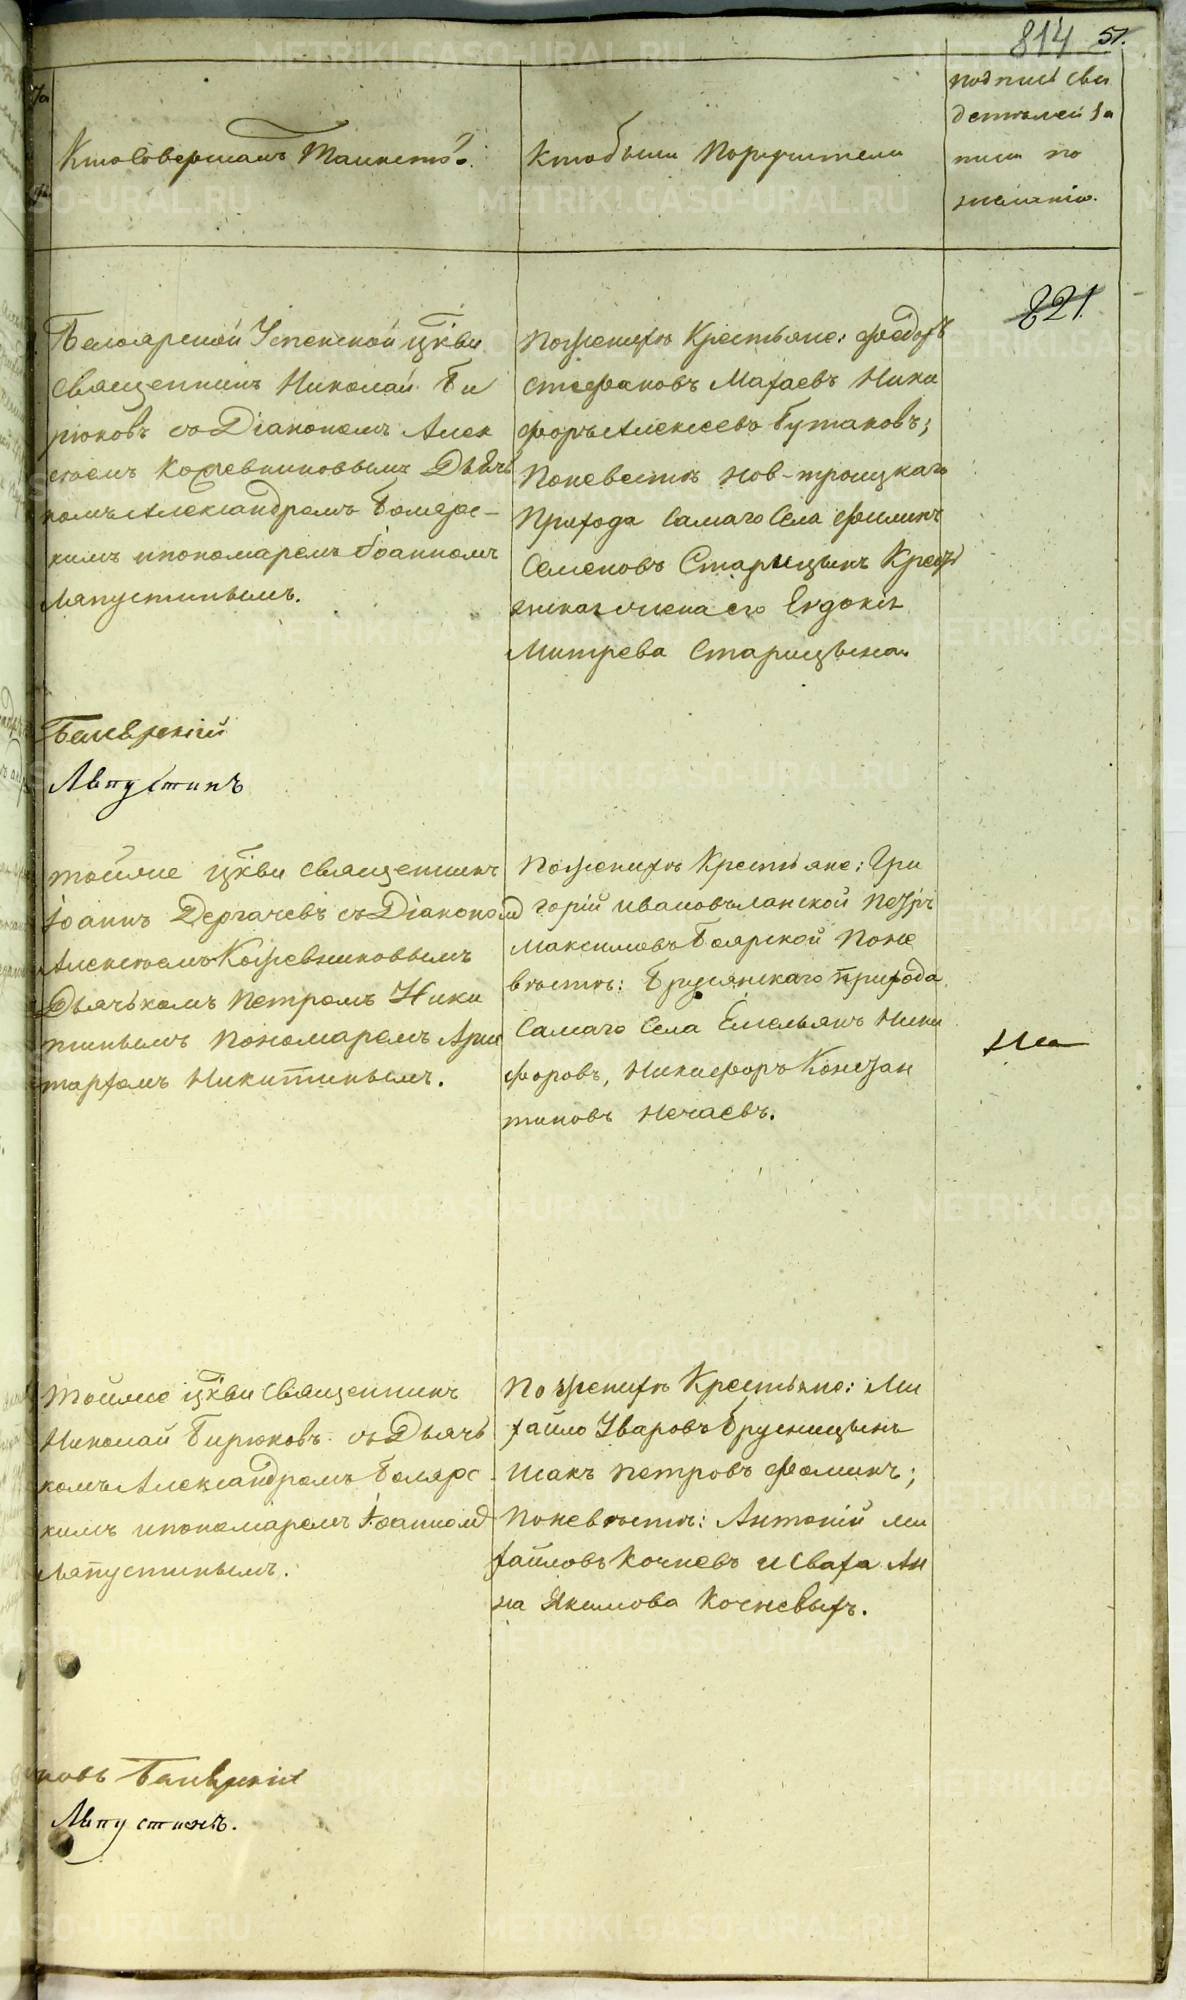 814 51.
Кто Совершалъ Таинство.
Кто были Поручители
подписи сви
детелей за
писи по
желанію.
221
Белоярской Успенской цркви
священникъ Николай Би
рюковъ со Діакономъ Алек
сѣемъ Кожевниковымъ Дьяч
комъ Александромъ Боярс-
кимъ и пономаремъ Іоанномъ
Ляпустинымъ.
По женихѣ Крестьяне: Федоръ
Стефановъ Махаевъ Ники
форъ Алексеевъ Бутаковъ;
По невестѣ Нов-троицкаго
Прихода Самаго Села Филипъ
Семеновъ Старицынъ Крест
жена его Евдокія
Митрева Старицына.
Боярскій
Ляпустинъ
Тойже цркви священникъ
Іоаннъ Дергачевъ съ Діакономъ
Алексѣемъ Кожевниковымъ
Дьячькомъ Петромъ Ники
тинымъ Пономаремъ Арис
тархомъ Никитинымъ.
По женихѣ Крестьяне: Гри
горій Ивановъ Ланской Петръ
Максимовъ Боярской По не
вѣстѣ: Брусянскаго прихода
Самаго Села Емельянъ Ники
форовъ, Никифоръ Констан
тиновъ Нечаевъ.
Тойже цркви Священникъ
Николай Бирюковъ съ Дьячь
комъ Александромъ Боярс
кимъ и пономаремъ Іоанномъ
Ляпустинымъ.
По женихѣ Крестьяне: Ми
хайло Уваровъ Брусницынъ
Исакъ Петровъ Фоминъ;
По невѣстѣ: Антоній Ми
хайловъ Кочневъ и Сваха Ан
на Якимова Кочневыхъ.
новъ Боярскій
Ляпустинъ.